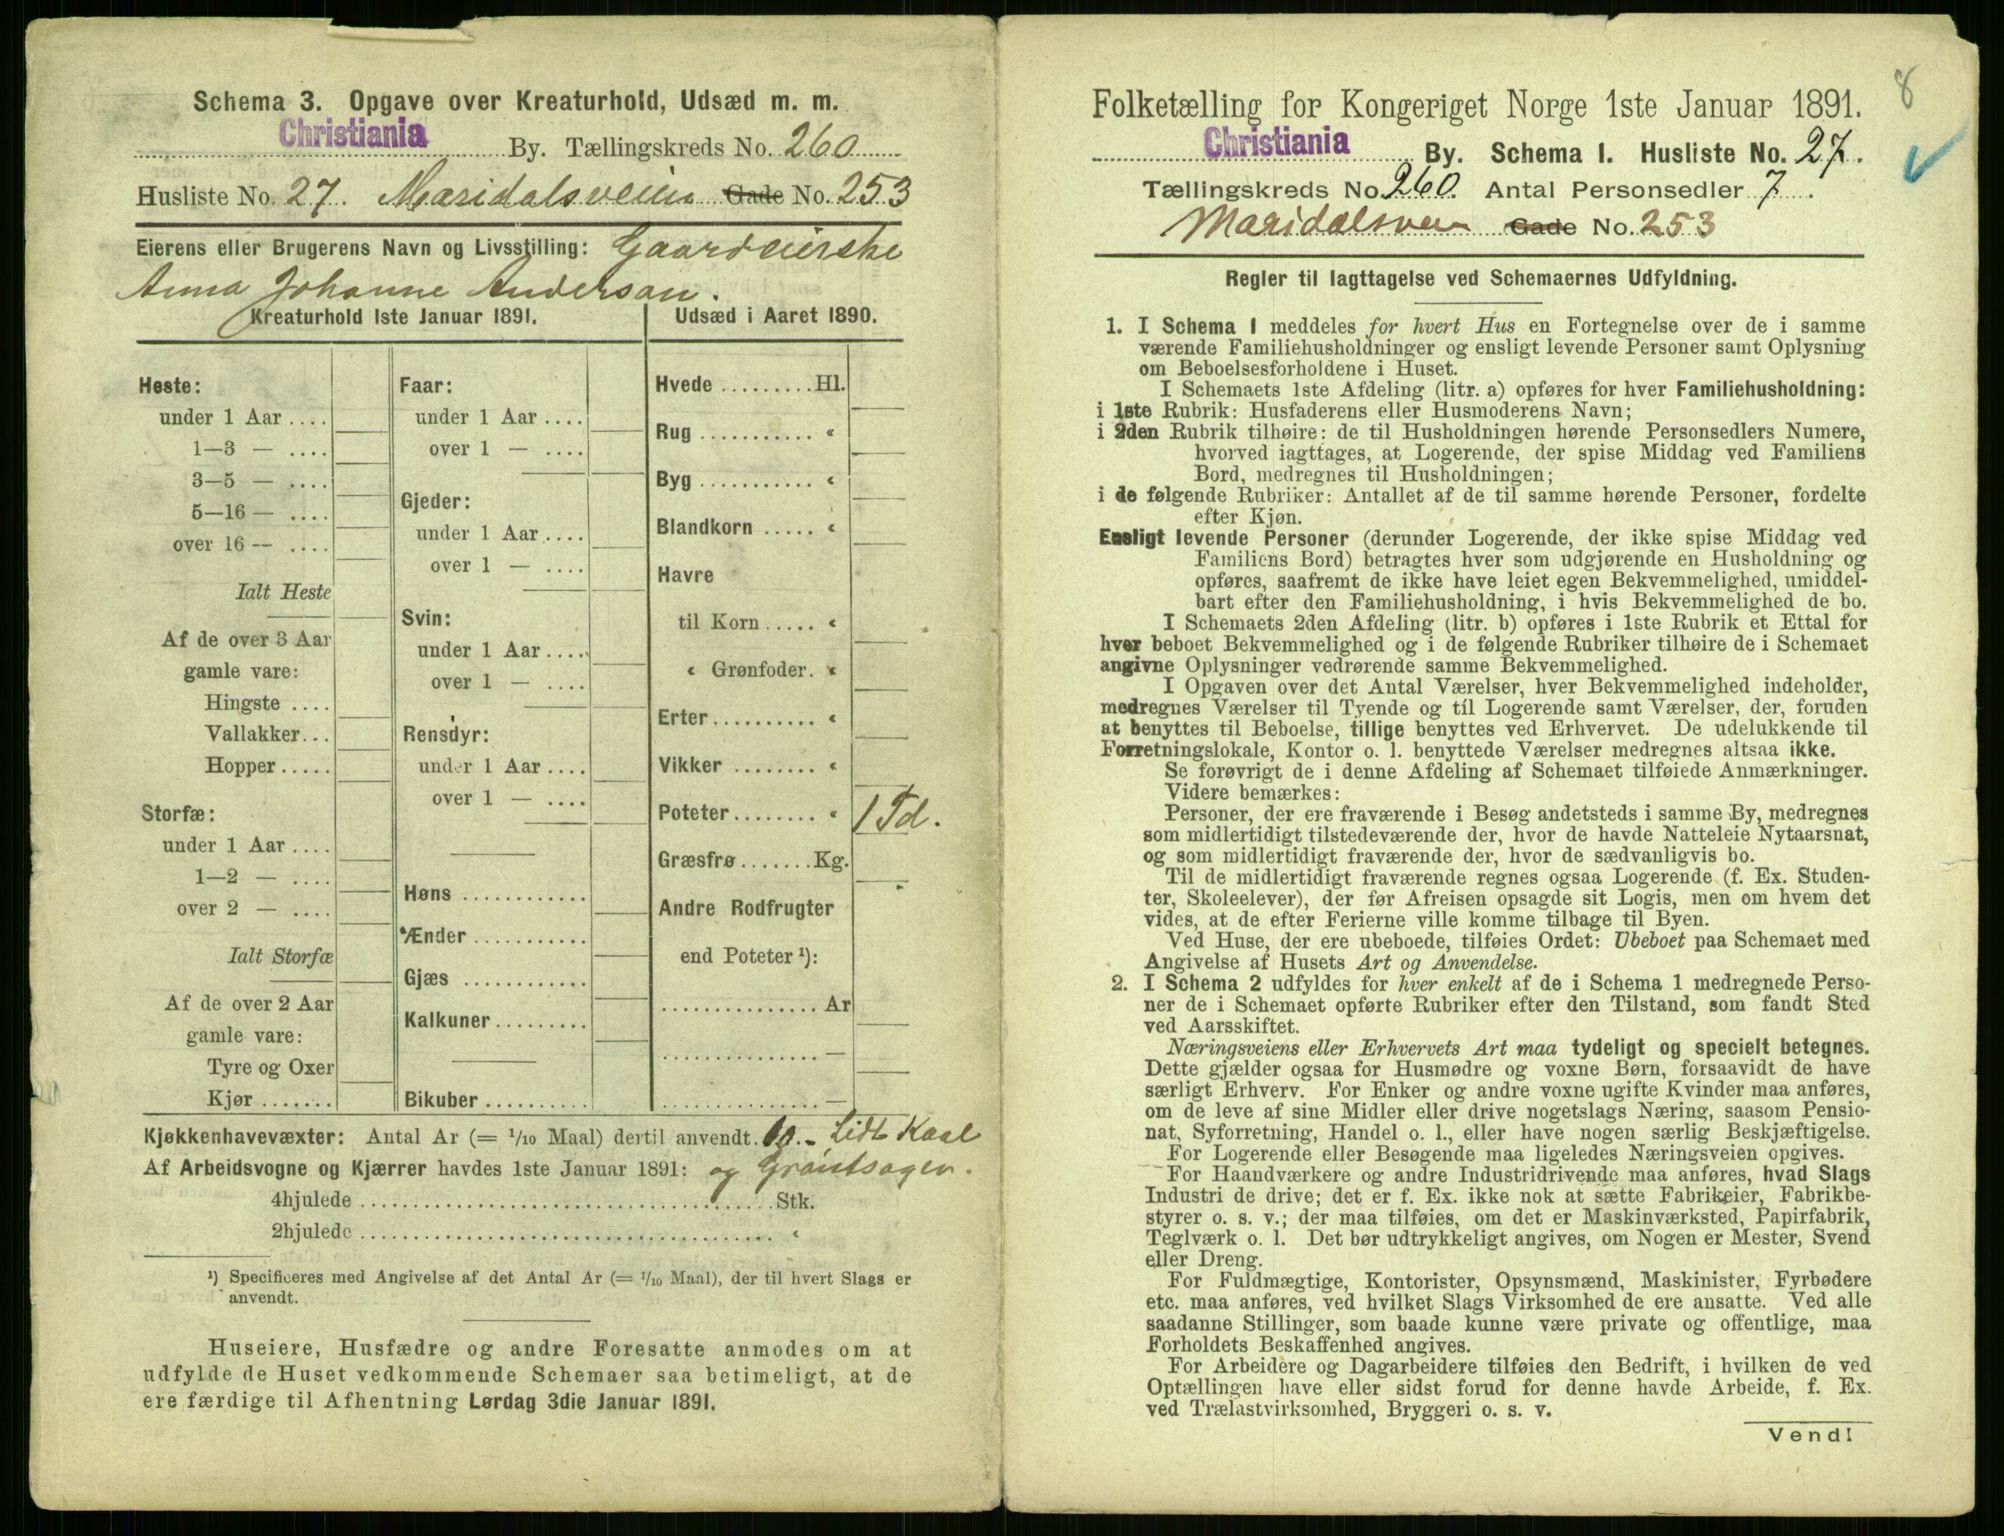 Schema 3. Opgave over Kreaturhold, Udsæd m. m.
Christiania By. Tællingskreds No. 260
Husliste No. 27. Maridalsveien Gade No. 253
Eierens eller Brugerens Navn og Livsstilling: Gaardeierske
Anna Johanne Anderson.
Kreaturhold 1ste Januar 1891.
Heste:
under 1 Aar ....
1—3 — ....
3—5 — ....
5—16 — ....
over 16 — ....
Ialt Heste
Af de over 3 Aar
gamle vare:
Hingste ....
Vallakker...
Hopper .....
Storfæ:
under 1 Aar ....
1—2 — ....
over 2 — ....
Ialt Storfæ
Af de over 2 Aar
gamle vare:
Tyre og Oxer
Kjør .......
Faar:
under 1 Aar ....
over 1 — ....
Gjeder:
under 1 Aar ....
over 1 — ....
Svin:
under 1 Aar ....
over 1 — ....
Rensdyr:
under 1 Aar ....
over 1 — ....
Høns ............
Ænder ...........
Gjæs ............
Kalkuner .........
Bikuber ..........
Udsæd i Aaret 1890.
Hvede ......... Hl.
Rug ........... «
Byg ........... «
Blandkorn ..... «
Havre
til Korn ..... «
« Grønfoder. «
Erter .......... «
Vikker ........ «
Poteter ........ « 1 Td.
Græsfrø ....... Kg.
Andre Rodfrugter
end Poteter ¹):
............... Ar
............... —
............... —
Kjøkkenhavevæxter: Antal Ar (= 1/10 Maal) dertil anvendt. Lidt Kaal
Af Arbeidsvogne og Kjærrer havdes 1ste Januar 1891: og Grøntsager.
4hjulede ........................................ Stk.
2hjulede ........................................ «
¹) Specificeres med Angivelse af det Antal Ar (= 1/10 Maal), der til hvert Slags er
anvendt.
Huseiere, Husfædre og andre Foresatte anmodes om at
udfylde de Huset vedkommende Schemaer saa betimeligt, at de
ere færdige til Afhentning Lørdag 3die Januar 1891.
8
Folketælling for Kongeriget Norge 1ste Januar 1891.
Christiania By. Schema I. Husliste No. 27.
Tællingskreds No. 260. Antal Personsedler 7.
Maridalsvei Gade No. 253
Regler til Iagttagelse ved Schemaernes Udfyldning.
1. I Schema I meddeles for hvert Hus en Fortegnelse over de i samme
værende Familiehusholdninger og ensligt levende Personer samt Oplysning
om Beboelsesforholdene i Huset.
I Schemaets 1ste Afdeling (litr. a) opføres for hver Familiehusholdning:
i 1ste Rubrik: Husfaderens eller Husmoderens Navn;
i 2den Rubrik tilhøire: de til Husholdningen hørende Personsedlers Numere,
hvorved iagttages, at Logerende, der spise Middag ved Familiens
Bord, medregnes til Husholdningen;
i de følgende Rubriker: Antallet af de til samme hørende Personer, fordelte
efter Kjøn.
Ensligt levende Personer (derunder Logerende, der ikke spise Middag ved
Familiens Bord) betragtes hver som udgjørende en Husholdning og
opføres, saafremt de ikke have leiet egen Bekvemmelighed, umiddel-
bart efter den Familiehusholdning, i hvis Bekvemmelighed de bo.
I Schemaets 2den Afdeling (litr. b) opføres i 1ste Rubrik et Ettal for
hver beboet Bekvemmelighed og i de følgende Rubriker tilhøire de i Schemaet
angivne Oplysninger vedrørende samme Bekvemmelighed.
I Opgaven over det Antal Værelser, hver Bekvemmelighed indeholder,
medregnes Værelser til Tyende og til Logerende samt Værelser, der, foruden
at benyttes til Beboelse, tillige benyttes ved Erhvervet. De udelukkende til
Forretningslokale, Kontor o. l. benyttede Værelser medregnes altsaa ikke.
Se forøvrigt de i denne Afdeling af Schemaet tilføiede Anmærkninger.
Videre bemærkes:
Personer, der ere fraværende i Besøg andetsteds i samme By, medregnes
som midlertidigt tilstedeværende der, hvor de havde Natteleie Nytaarsnat,
og som midlertidigt fraværende der, hvor de sædvanligvis bo.
Til de midlertidigt fraværende regnes ogsaa Logerende (f. Ex. Studen-
ter, Skoleelever), der før Afreisen opsagde sit Logis, men om hvem det
vides, at de efter Ferierne ville komme tilbage til Byen.
Ved Huse, der ere ubeboede, tilføies Ordet: Ubeboet paa Schemaet med
Angivelse af Husets Art og Anvendelse.
2. I Schema 2 udfyldes for hver enkelt af de i Schema 1 medregnede Perso-
ner de i Schemaet opførte Rubriker efter den Tilstand, som fandt Sted
ved Aarsskiftet.
Næringsveiens eller Erhvervets Art maa tydeligt og specielt betegnes.
Dette gjælder ogsaa for Husmødre og voxne Børn, forsaavidt de have
særligt Erhverv. For Enker og andre voxne ugifte Kvinder maa anføres,
om de leve af sine Midler eller drive nogetslags Næring, saasom Pensio-
nat, Syforretning, Handel o. l., eller have nogen særlig Beskjæftigelse.
For Logerende eller Besøgende maa ligeledes Næringsveien opgives.
For Haandværkere og andre Industridrivende maa anføres, hvad Slags
Industri de drive; det er f. Ex. ikke nok at sætte Fabrikeier, Fabrikbe-
styrer o. s. v.; der maa tilføies, om det er Maskinværksted, Papirfabrik,
Teglværk o. l. Det bør udtrykkeligt angives, om Nogen er Mester, Svend
eller Dreng.
For Fuldmægtige, Kontorister, Opsynsmænd, Maskinister, Fyrbødere
etc. maa anføres, ved hvilket Slags Virksomhed de ere ansatte. Ved alle
saadanne Stillinger, som baade kunne være private og offentlige, maa
Forholdets Beskaffenhed angives.
For Arbeidere og Dagarbeidere tilføies den Bedrift, i hvilken de ved
Optællingen have eller sidst forud for denne havde Arbeide, f. Ex.
ved Trælastvirksomhed, Bryggeri o. s. v.
Vend!